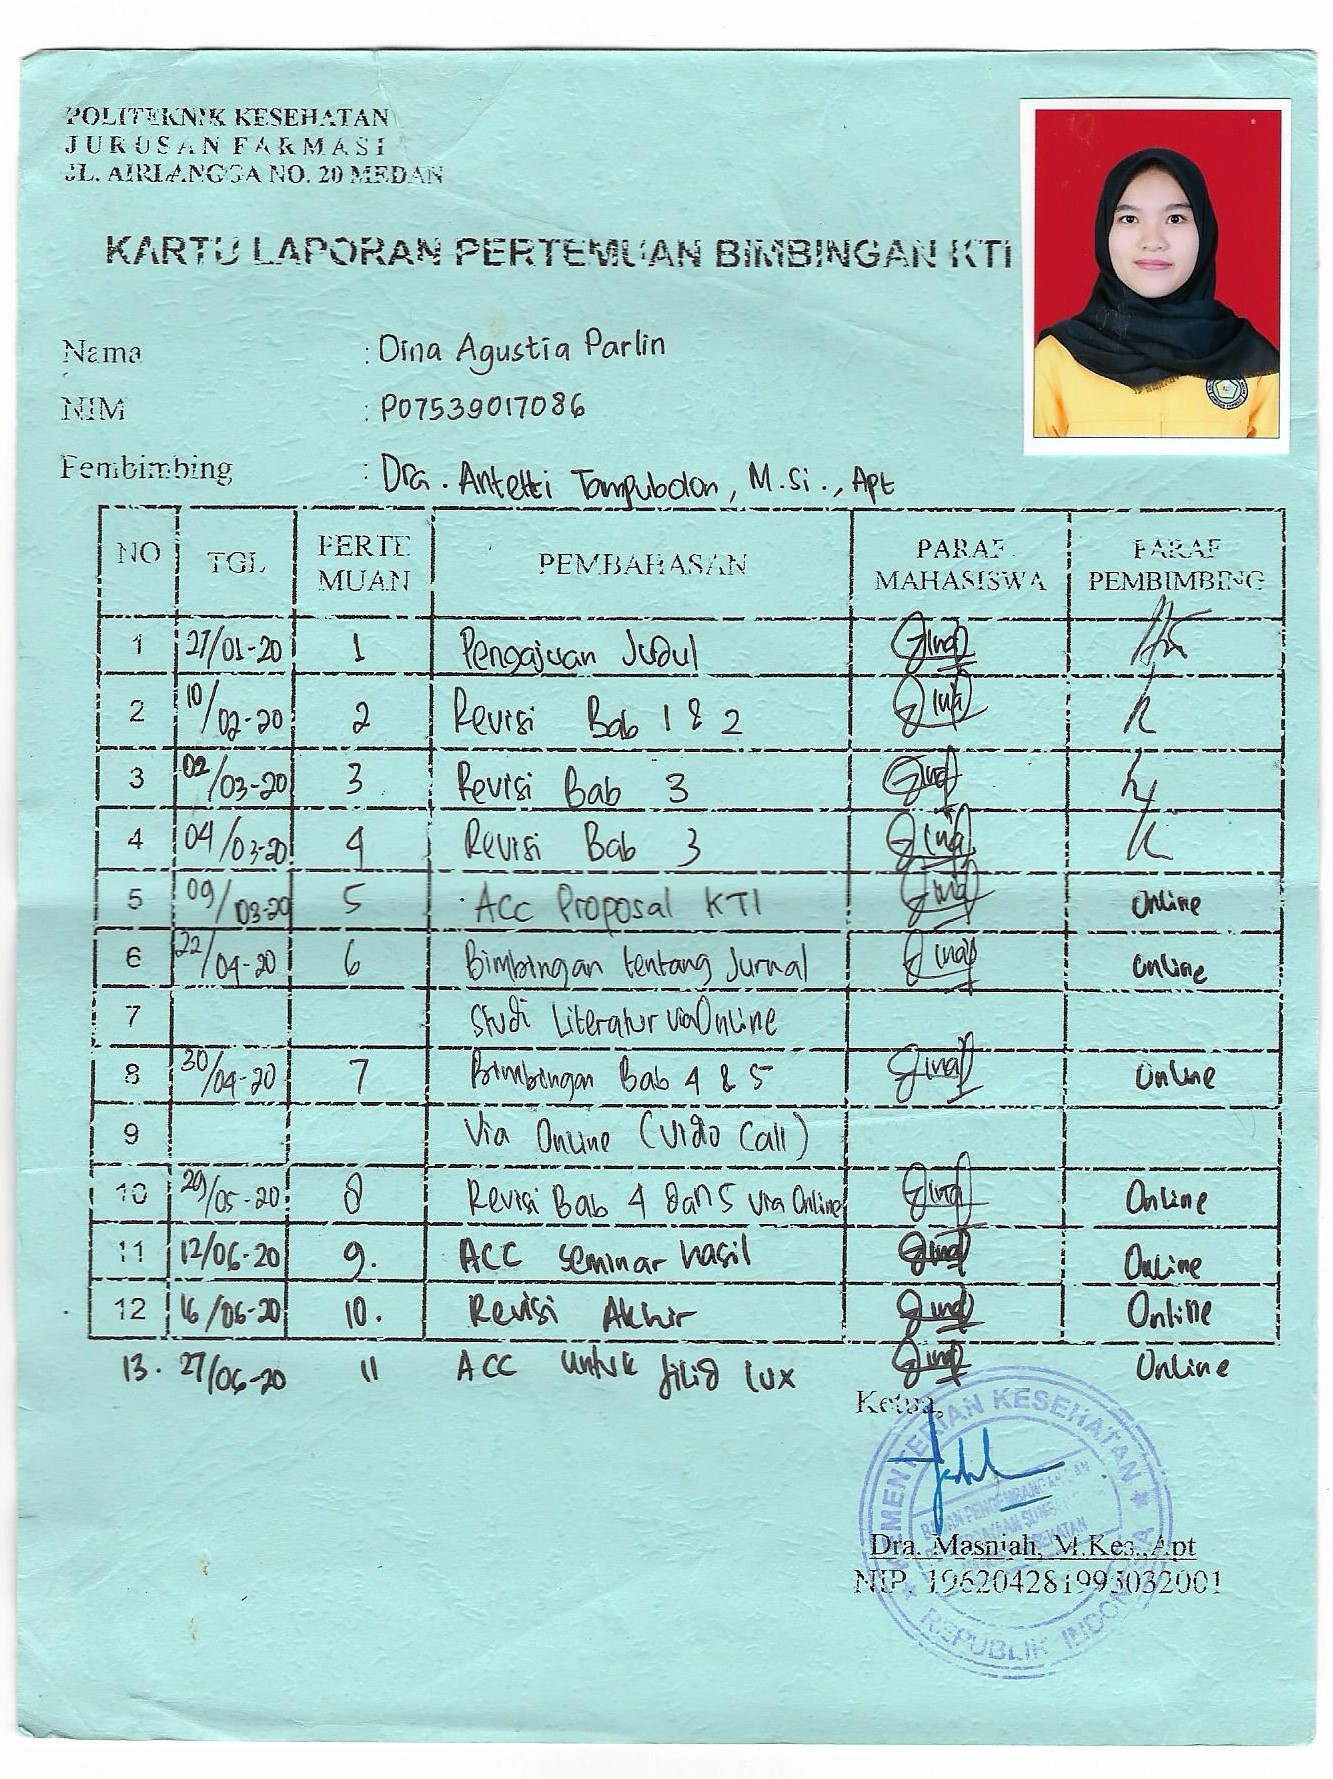 POLITEKNIK KESEHATAN
JURUSAN FARMASI
JL. AIRLANGGA NO. 20 MEDAN
KARTU LAPORAN PERTEMUAN BIMBINGAN KTI
Nama : Dina Agustia Parlin
NIM : P07539017086
Pembimbing : Dra. Antetti Tampubolon, M.Si., Apt
NO TGL PERTE MUAN PEMBAHASAN PARAF MAHASISWA PARAF PEMBIMBING
1 27/01-20 1 Pengajuan Judul
2 10/02-20 2 Revisi Bab 1 & 2
3 02/03-20 3 Revisi Bab 3
4 04/03-20 4 Revisi Bab 3
5 09/03-20 5 ACC Proposal KTI Online
6 22/04-20 6 Bimbingan tentang Jurnal Online
7 Studi Literatur via Online
8 30/04-20 7 Bimbingan Bab 4 & 5 Online
9 Via Online (Vidio Call)
10 29/05-20 8 Revisi Bab 4 dan 5 via Online Online
11 12/06-20 9. ACC seminar hasil Online
12 16/06-20 10. Revisi Akhir Online
13. 27/06-20 11 ACC untuk jilid lux Online
Ketua,
KEMENTERIAN KESEHATAN
Dra. Masniah, M.Kes., Apt
NIP. 196204281995032001
REPUBLIK INDONESIA